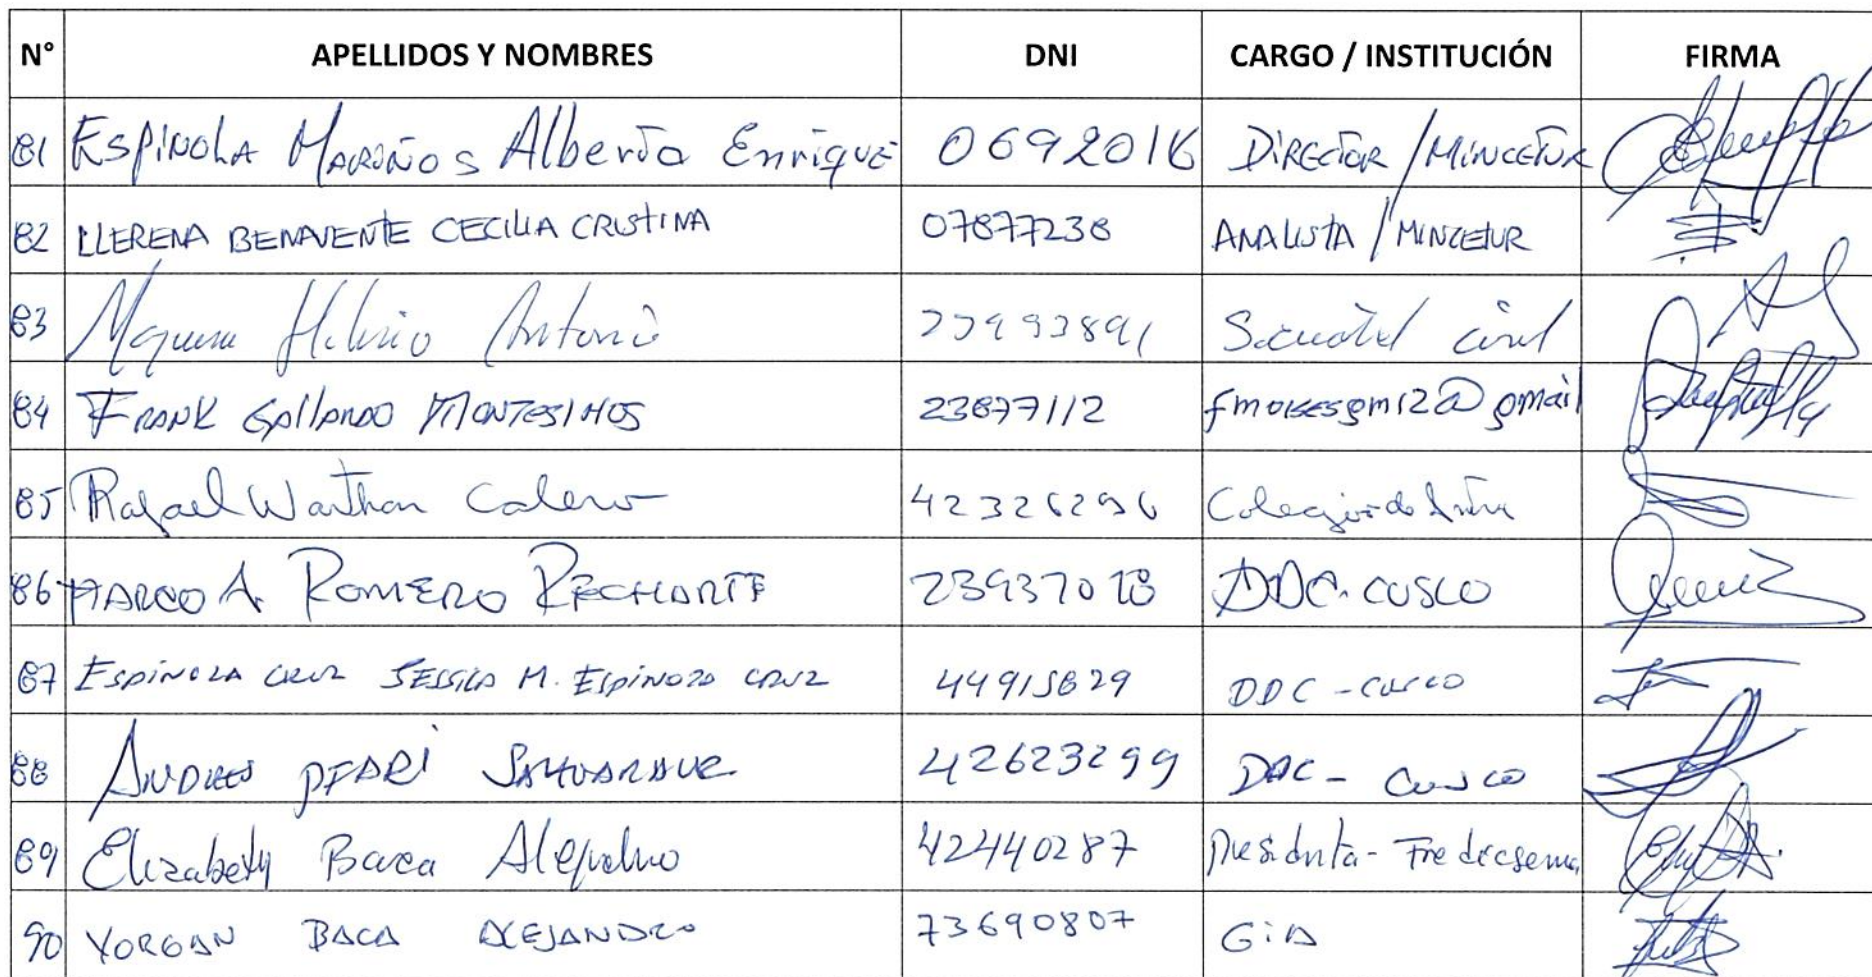 N° APELLIDOS Y NOMBRES DNI CARGO / INSTITUCIÓN FIRMA
81 Espinola Mariños Alberto Enrique 0692016 Director / Mincetur
82 LLERENA BENAVENTE CECILIA CRISTINA 07877238 ANALISTA / MINCETUR
83 Hilario Antonio civil
84 FRANK GALLARDO MONTESINOS 23877112 fmoisesgm12@gmail
85 Rafael Warthon Calero 42326296 Colegio de
86 MARCO A. ROMERO RECHARTE 23937018 DDC-CUSCO
87 ESPINOZA CRUZ JESSICA M. ESPINOZA CRUZ 44915829 DDC-CUSCO
88 ANDRES 42623299 DDC- Cusco
89 Elizabeth Baca 42440287 Presidenta-
90 YORGAN BACA ALEJANDRO 73690807 GIA